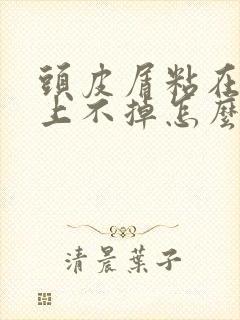 頭皮屑粘在
上不掉怎麼
清晨葉子